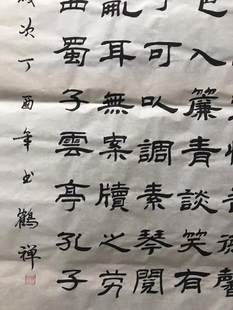 色入簾青談笑有
丁可以調素琴閱
亂耳無案牘之勞
西蜀子雲亭孔子
歲次丁酉年書鶴禅